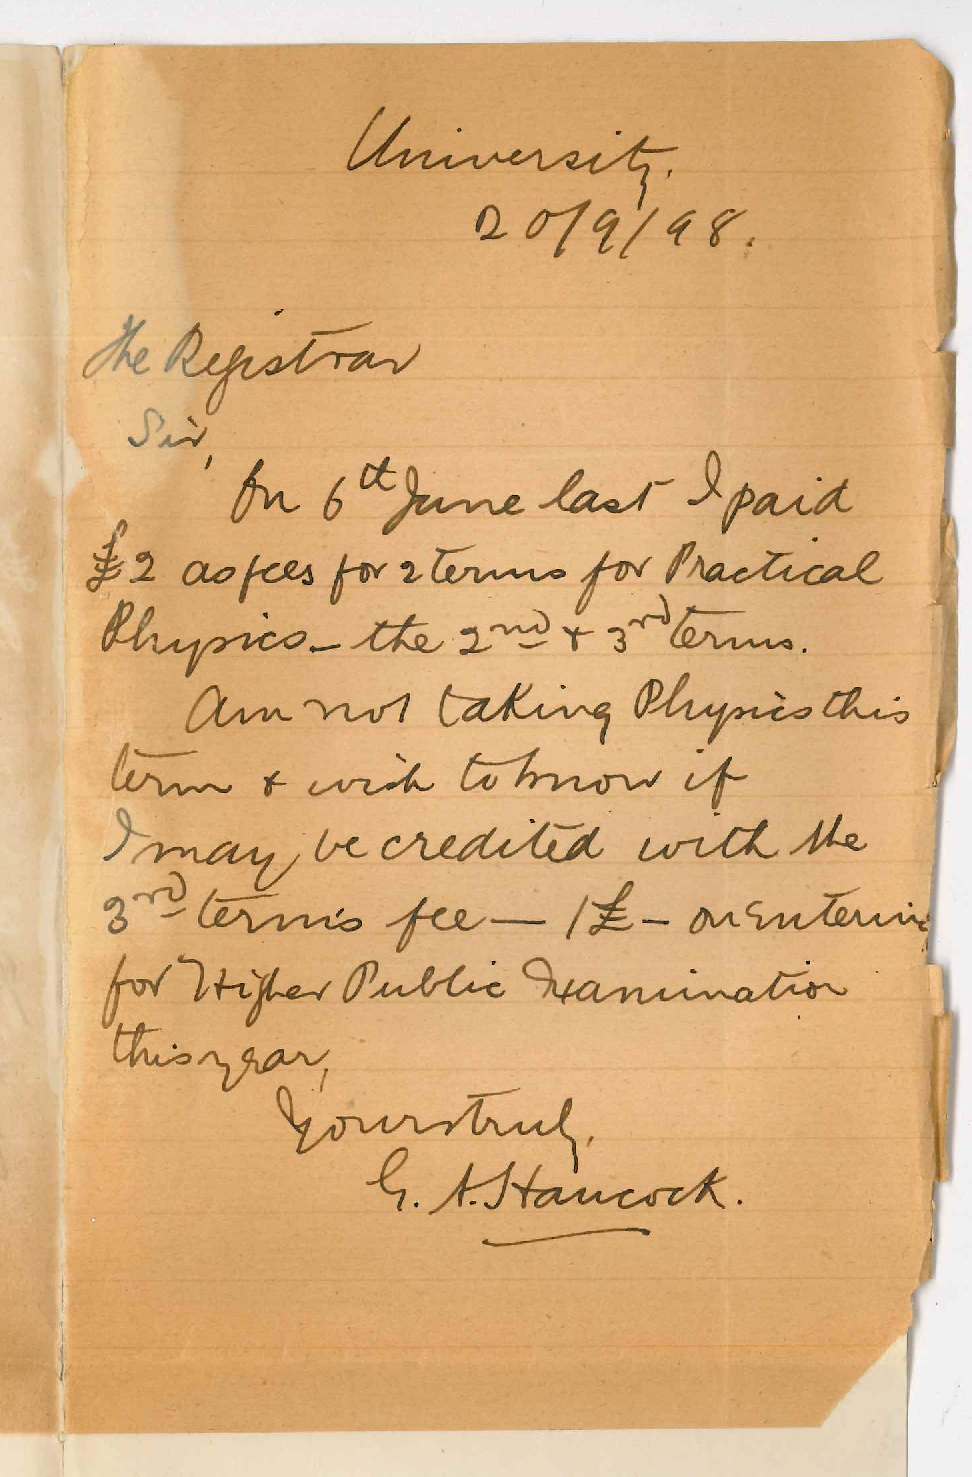 University.
20/9/98.
The Registrar
Sir,
On 6th June last I paid
£2 as fees for 2 terms for Practical
Physics — the 2nd & 3rd terms.
Am not taking Physics this
term & wish to know if
I may be credited with the
3rd term's fee — 1£ — on entering
for Higher Public Examination
this year,
Yours truly,
G. A. Hancock.